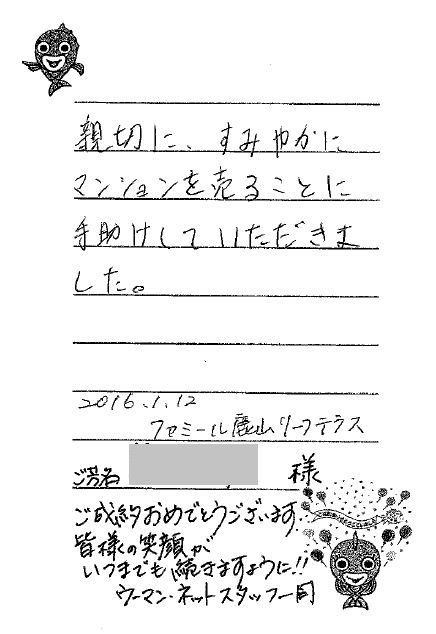 親切に、すみやかに
マンションを売ることに
手助けしていただきま
した。
2016.1.12
ファミール鹿山リーフテラス
ご芳名 様
ご成約おめでとうございます
皆様の笑顔が
いつまでも続きますように!!
ウーマン・ネットスタッフ一同